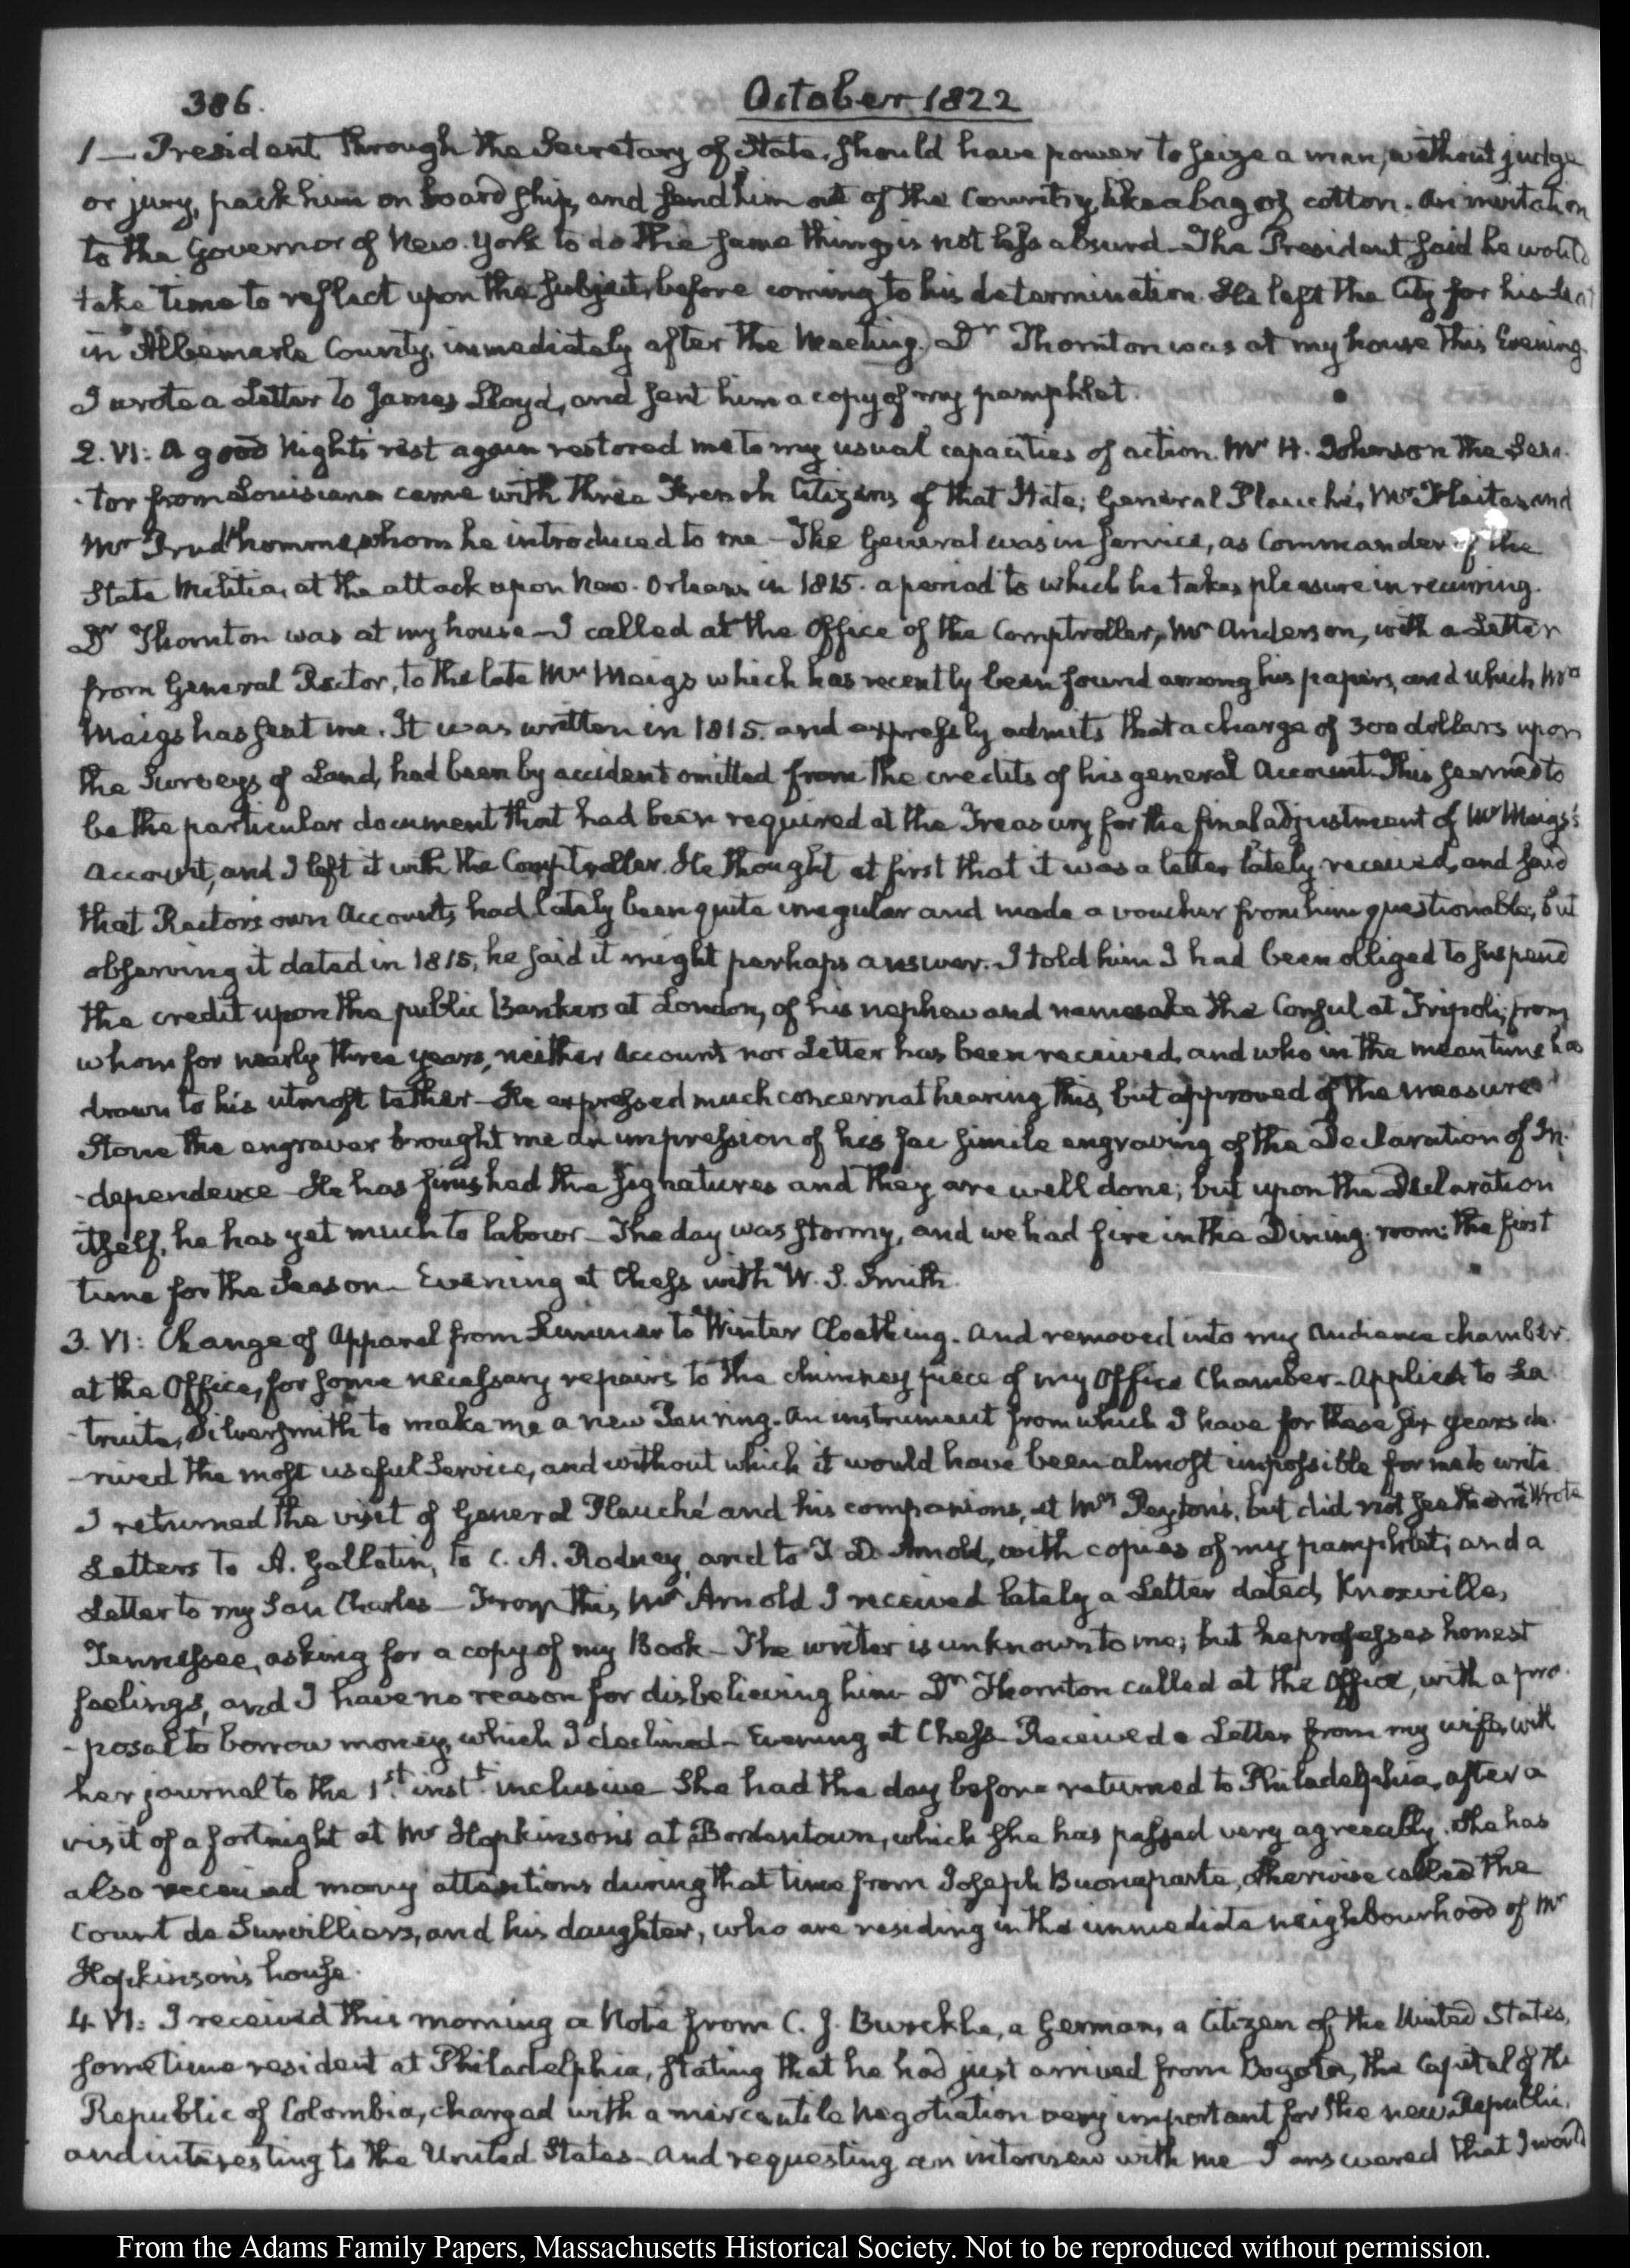 386.
October 1822
1 — President through the Secretary of State, should have power to seize a man, without judge
or jury, pack him on board ship, and send him out of the Country, like a bag of cotton. An invitation
to the Governor of New-York to do the same thing, is not less absurd — The President said he would
take time to reflect upon the subject, before coming to his determination. He left the City for his seat
in Albemarle County, immediately after the Meeting. Dr Thornton was at my house this Evening.
I wrote a Letter to James Lloyd, and sent him a copy of my pamphlet.
2. VI: A good Night's rest again restored me to my usual capacities of action. Mr H. Johnson the Sena-
-tor from Louisiana came with three French Citizens of that State; General Plauché, Mr Fleitas and
Mr Prud'homme, whom he introduced to me — The General was in service, as Commander of the
State Militia, at the attack upon New-Orleans in 1815. a period to which he takes pleasure in recurring.
Dr Thornton was at my house — I called at the Office of the Comptroller, Mr Anderson, with a Letter
from General Rector, to the late Mr Meigs which has recently been found among his papers, and which Mrs
Meigs has sent me. It was written in 1815. and expressly admits that a charge of 300 dollars upon
the Surveys of Land, had been by accident omitted from the credits of his general Account. This seemed to
be the particular document that had been required at the Treasury for the final adjustment of Mr Meigs's
Account, and I left it with the Comptroller. He thought at first that it was a letter lately received, and said
that Rector's own Accounts had lately been quite irregular and made a voucher from him questionable; but
observing it dated in 1815, he said it might perhaps answer. I told him I had been obliged to suspend
the credit upon the public Bankers at London, of his nephew and namesake the Consul at Tripoli, from
whom for nearly three years, neither Account nor Letter has been received, and who in the meantime has
drawn to his utmost tether — He expressed much concern at hearing this, but approved of the measure
Stone the engraver brought me an impression of his fac simile engraving of the Declaration of In-
-dependence — He has finished the signatures and they are well done; but upon the Declaration
itself, he has yet much to labour — The day was stormy, and we had fire in the Dining-room: the first
time for the Season — Evening at Chess with W. S. Smith.
3. VI: Change of Apparel from Summer to Winter Cloathing. And removed into my Audience chamber
at the Office, for some necessary repairs to the chimney piece of my Office Chamber — Applied to La
truite, Silversmith to make me a new Pen ring. An instrument from which I have for these six years de-
-rived the most useful Service, and without which it would have been almost impossible for me to write.
I returned the visit of General Plauché and his companions, at Mrs Peyton's, but did not see them. Wrote
Letters to A. Gallatin, to C. A. Rodney, and to T. D. Arnold, with copies of my pamphlet; and a
Letter to my Son Charles — From this Mr Arnold I received lately a Letter dated Knoxville,
Tennessee, asking for a copy of my Book — The writer is unknown to me; but he professes honest
feelings, and I have no reason for disbelieving him — Dr Thornton called at the Office, with a pro-
-posal to borrow money, which I declined — Evening at Chess — Received a Letter from my wife, with
her journal to the 1st inst inclusive — She had the day before returned to Philadelphia, after a
visit of a fortnight at Mr Hopkinson's at Bordentown, which she has passed very agreeably. She has
also received many attentions during that time from Joseph Buonaparte, otherwise called the
Count de Survilliers, and his daughter, who are residing in the immediate neighbourhood of Mr
Hopkinson's house.
4. VI: I received this morning a Note from C. J. Burckle, a German, a Citizen of the United States,
sometime resident at Philadelphia, stating that he had just arrived from Bogota, the Capital of the
Republic of Colombia, charged with a mercantile Negotiation very important for the new Republic,
and interesting to the United States — And requesting an interview with me — I answered that I would
From the Adams Family Papers, Massachusetts Historical Society. Not to be reproduced without permission.